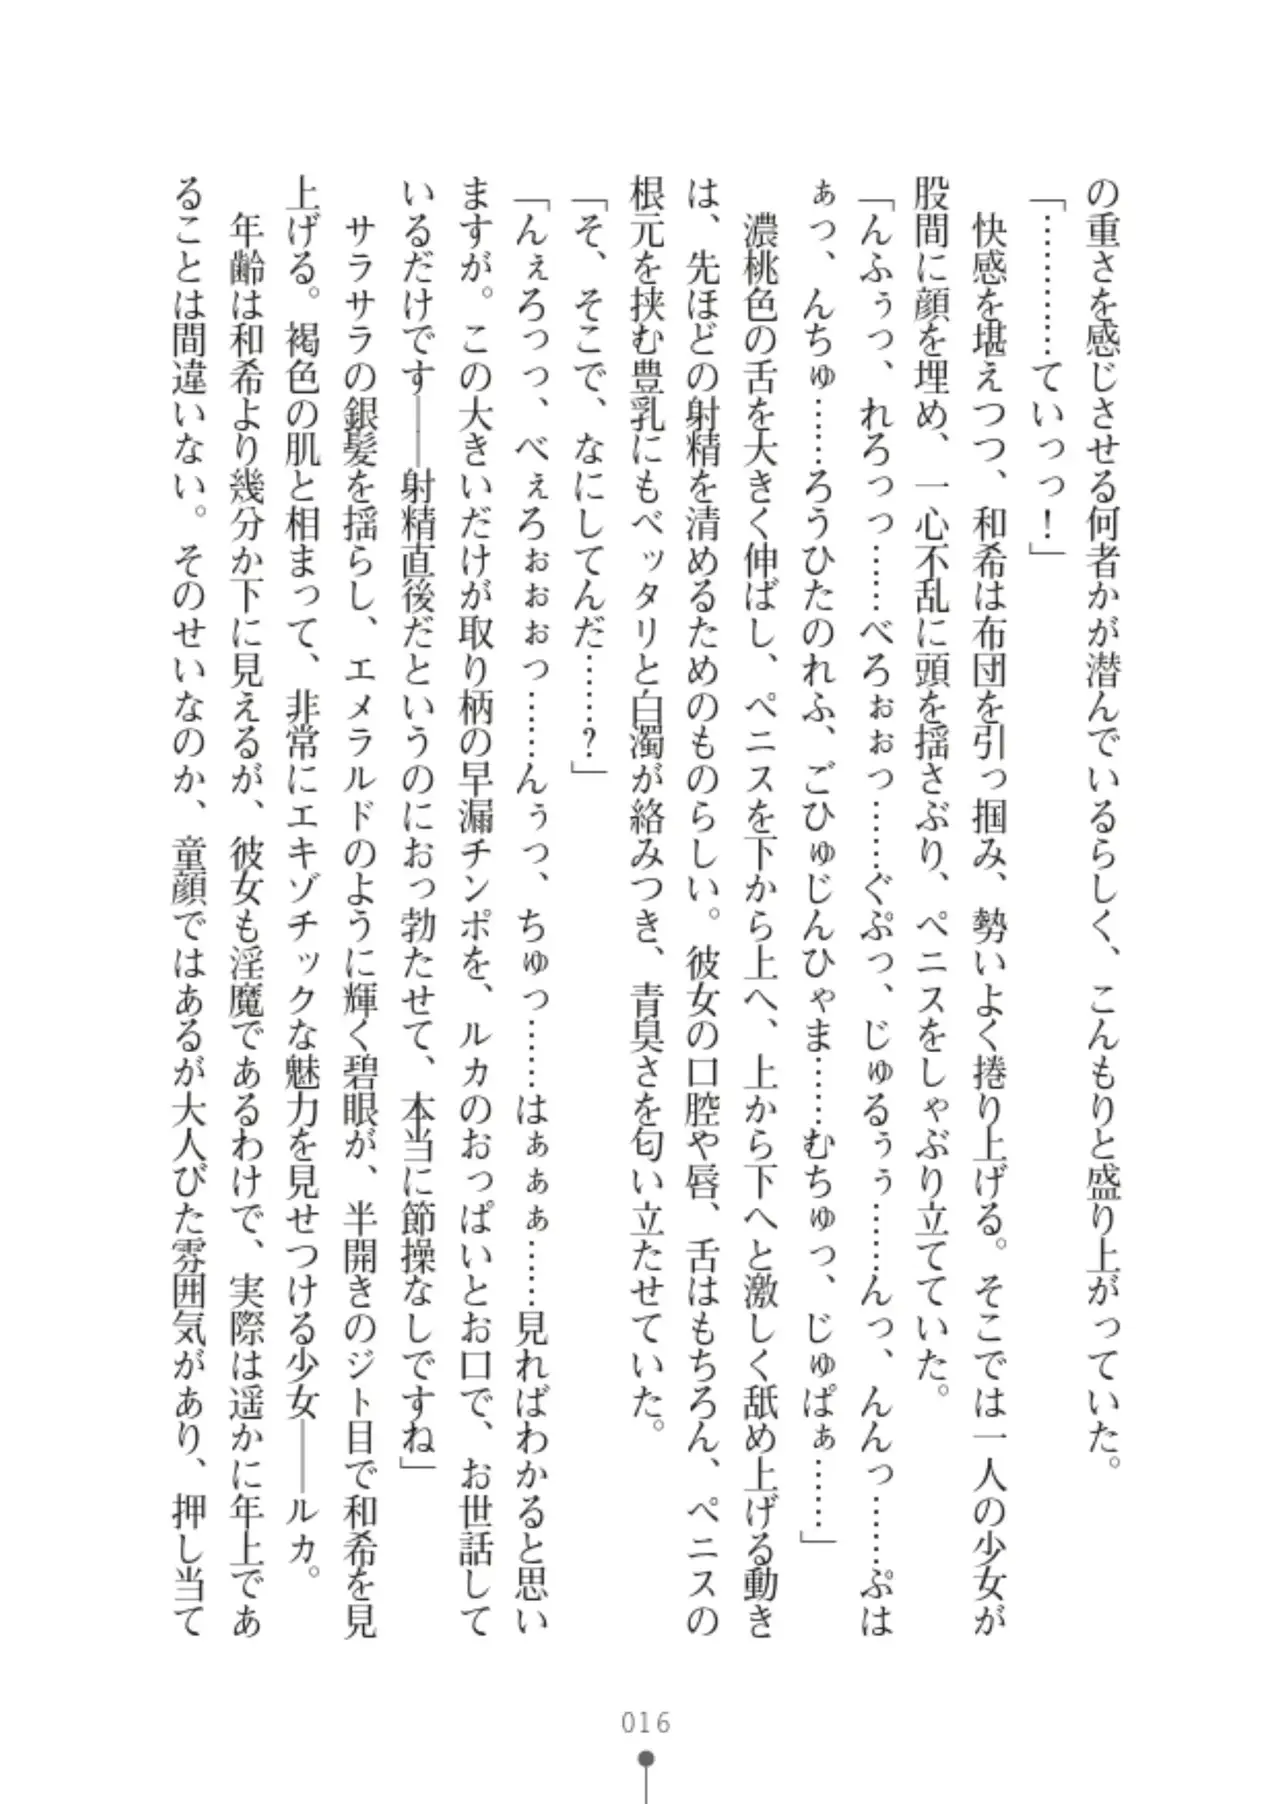 の重さを感じさせる何者かが潜んでいるらしく、こんもりと盛り上がっていた。
「…………ていっっ！」
　快感を堪えつつ、和希は布団を引っ掴み、勢いよく捲り上げる。そこでは一人の少女が
股間に顔を埋め、一心不乱に頭を揺さぶり、ペニスをしゃぶり立てていた。
「んふぅっ、れろっっ……べろぉぉっ………ぐぷっ、じゅるぅぅ……んっ、んんっ………ぷは
ぁっ、んちゅ……ろうひたのれふ、ごひゅじんひゃま……むちゅっ、じゅぱぁ……」
　濃桃色の舌を大きく伸ばし、ペニスを下から上へ、上から下へと激しく舐め上げる動き
は、先ほどの射精を清めるためのものらしい。彼女の口腔や唇、舌はもちろん、ペニスの
根元を挟む豊乳にもベッタリと白濁が絡みつき、青臭さを匂い立たせていた。
「そ、そこで、なにしてんだ……？」
「んぇろっっ、べぇろぉぉぉっ………んぅっ、ちゅっ………はぁぁぁ……見ればわかると思い
ますが。この大きいだけが取り柄の早漏チンポを、ルカのおっぱいとお口で、お世話して
いるだけです――射精直後だというのにおっ勃たせて、本当に節操なしですね」
　サラサラの銀髪を揺らし、エメラルドのように輝く碧眼が、半開きのジト目で和希を見
上げる。褐色の肌と相まって、非常にエキゾチックな魅力を見せつける少女――ルカ。
　年齢は和希より幾分か下に見えるが、彼女も淫魔であるわけで、実際は遥かに年上であ
ることは間違いない。そのせいなのか、童顔ではあるが大人びた雰囲気があり、押し当て
016